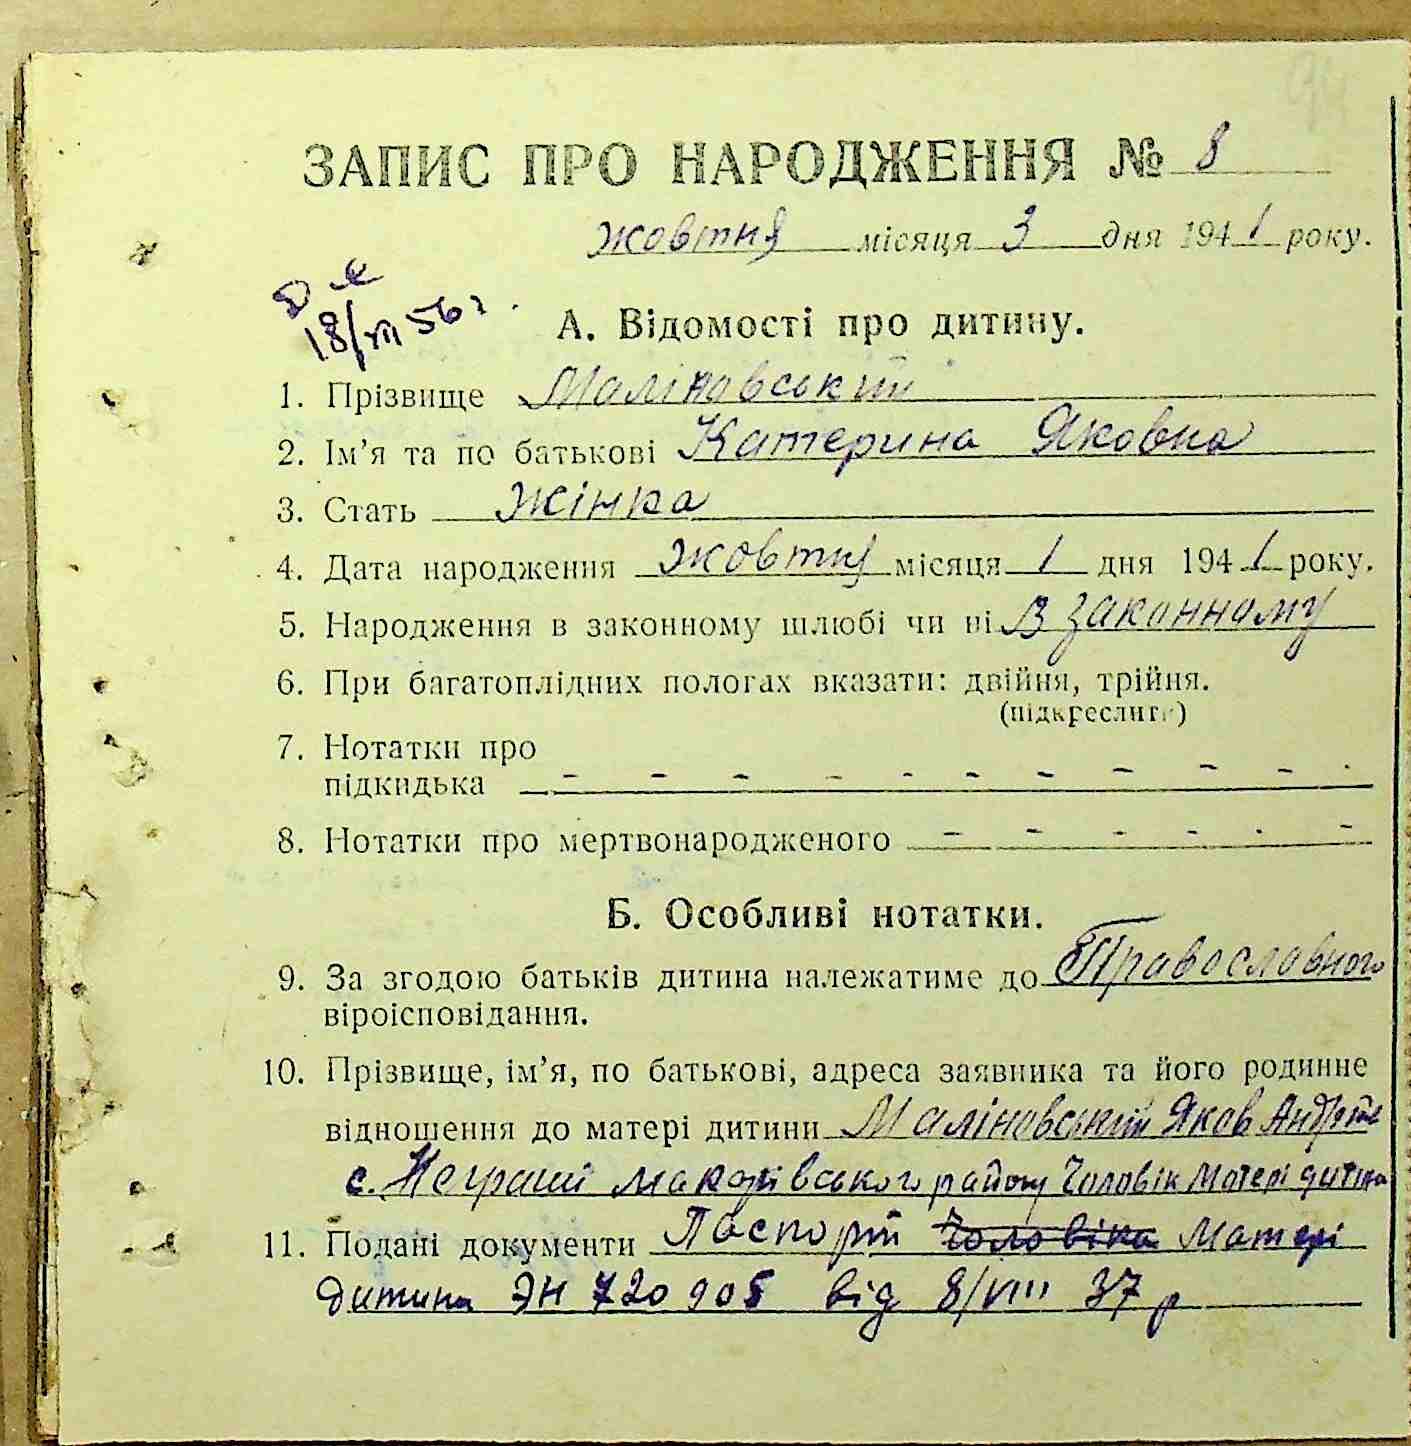 94
ЗАПИС ПРО НАРОДЖЕННЯ № 8
жовтня місяця 3 дня 1941 року.
18/VII 56 г.
А. Відомості про дитину.
1. Прізвище Маліновський
2. Ім'я та по батькові Катерина Яковна
3. Стать Жінка
4. Дата народження жовтня місяця 1 дня 1941 року.
5. Народження в законному шлюбі чи ні В законному
6. При багатоплідних пологах вказати: двійня, трійня.
(підкреслити)
7. Нотатки про
підкидька - - - - - - - - - - -
8. Нотатки про мертвонародженого - - - - - -
Б. Особливі нотатки.
9. За згодою батьків дитина належатиме до Православного
віроісповідання.
10. Прізвище, ім'я, по батькові, адреса заявника та його родинне
відношення до матері дитини Маліновський Яков
с. Макарівського району Чоловік Матері дитина
11. Подані документи Паспорт Чоловіка Матері
дитина ЭН 720905 від 8/VIII 37 р